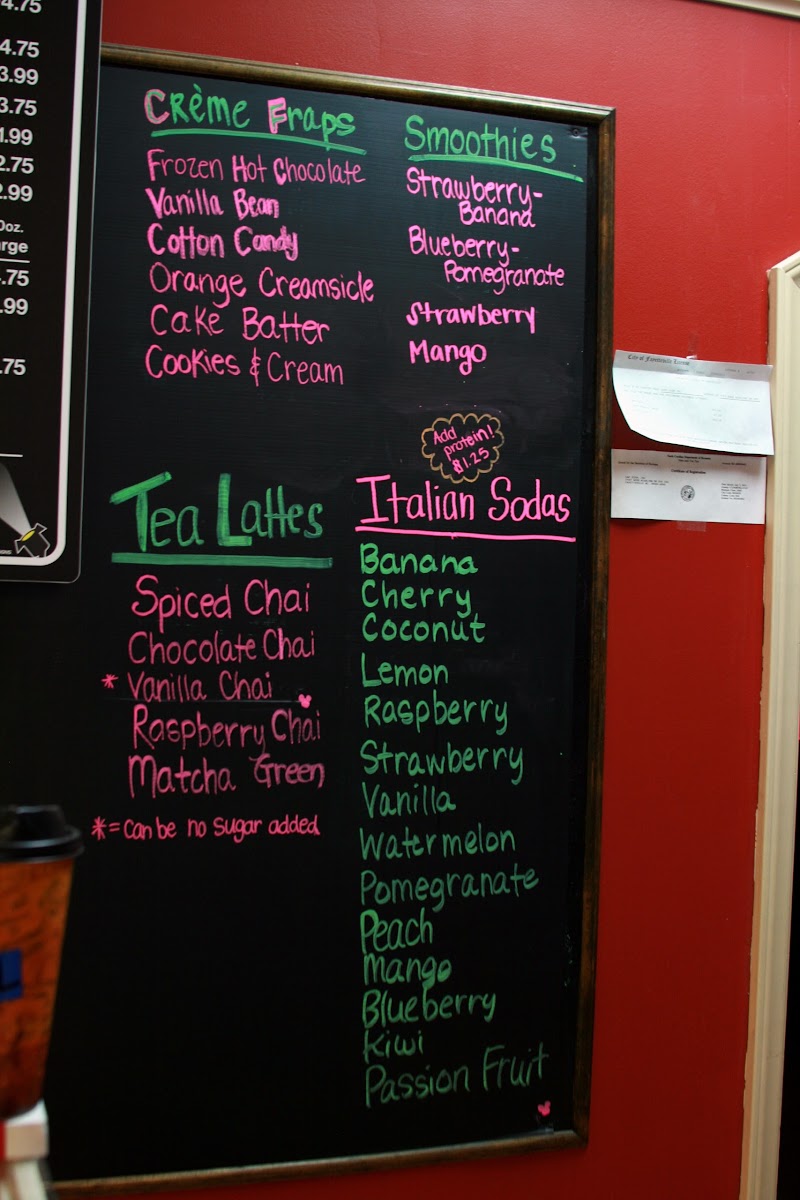 4.75
4.75
3.99
3.75
1.99
2.75
2.99
Doz.
arge
.75
.99
.75
Crème Fraps
Frozen Hot Chocolate
Vanilla Bean
Cotton Candy
Orange Creamsicle
Cake Batter
Cookies & Cream
Smoothies
Strawberry-
Banana
Blueberry-
Pomegranate
Strawberry
Mango
Add
protein!
$1.25
Tea Lattes
Spiced Chai
Chocolate Chai
* Vanilla Chai
Raspberry Chai
Matcha Green
*= can be no sugar added
Italian Sodas
Banana
Cherry
Coconut
Lemon
Raspberry
Strawberry
Vanilla
Watermelon
Pomegranate
Peach
Mango
Blueberry
Kiwi
Passion Fruit
City of Fayetteville License
Certificate of Registration